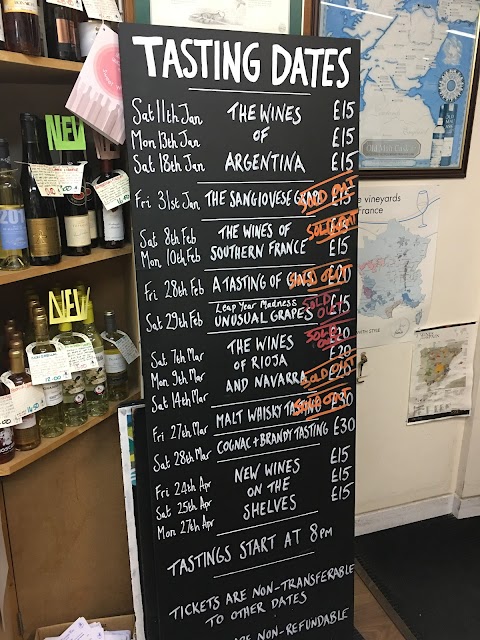 TASTING DATES
Sat 11th Jan THE WINES £15
Mon 13th Jan OF £15
Sat 18th Jan ARGENTINA £15
Fri 31st Jan THE SANGIOVESE GRAPE £15 SOLD OUT
Sat 8th Feb THE WINES OF £15 SOLD OUT
Mon 10th Feb SOUTHERN FRANCE £15
Fri 28th Feb A TASTING OF GINS £20 SOLD OUT
Sat 29th Feb Leap Year Madness UNUSUAL GRAPES £15 SOLD OUT
Sat 7th Mar THE WINES £20 SOLD OUT
Mon 9th Mar OF RIOJA £20
Sat 14th Mar AND NAVARRA £20 SOLD OUT
Fri 27th Mar MALT WHISKY TASTING £30 SOLD OUT
Sat 28th Mar COGNAC + BRANDY TASTING £30
Fri 24th Apr NEW WINES £15
Sat 25th Apr ON THE £15
Mon 27th Apr SHELVES £15
TASTINGS START AT 8PM
TICKETS ARE NON-TRANSFERABLE
TO OTHER DATES
ARE NON-REFUNDABLE
NEW
NEW
vineyards
France